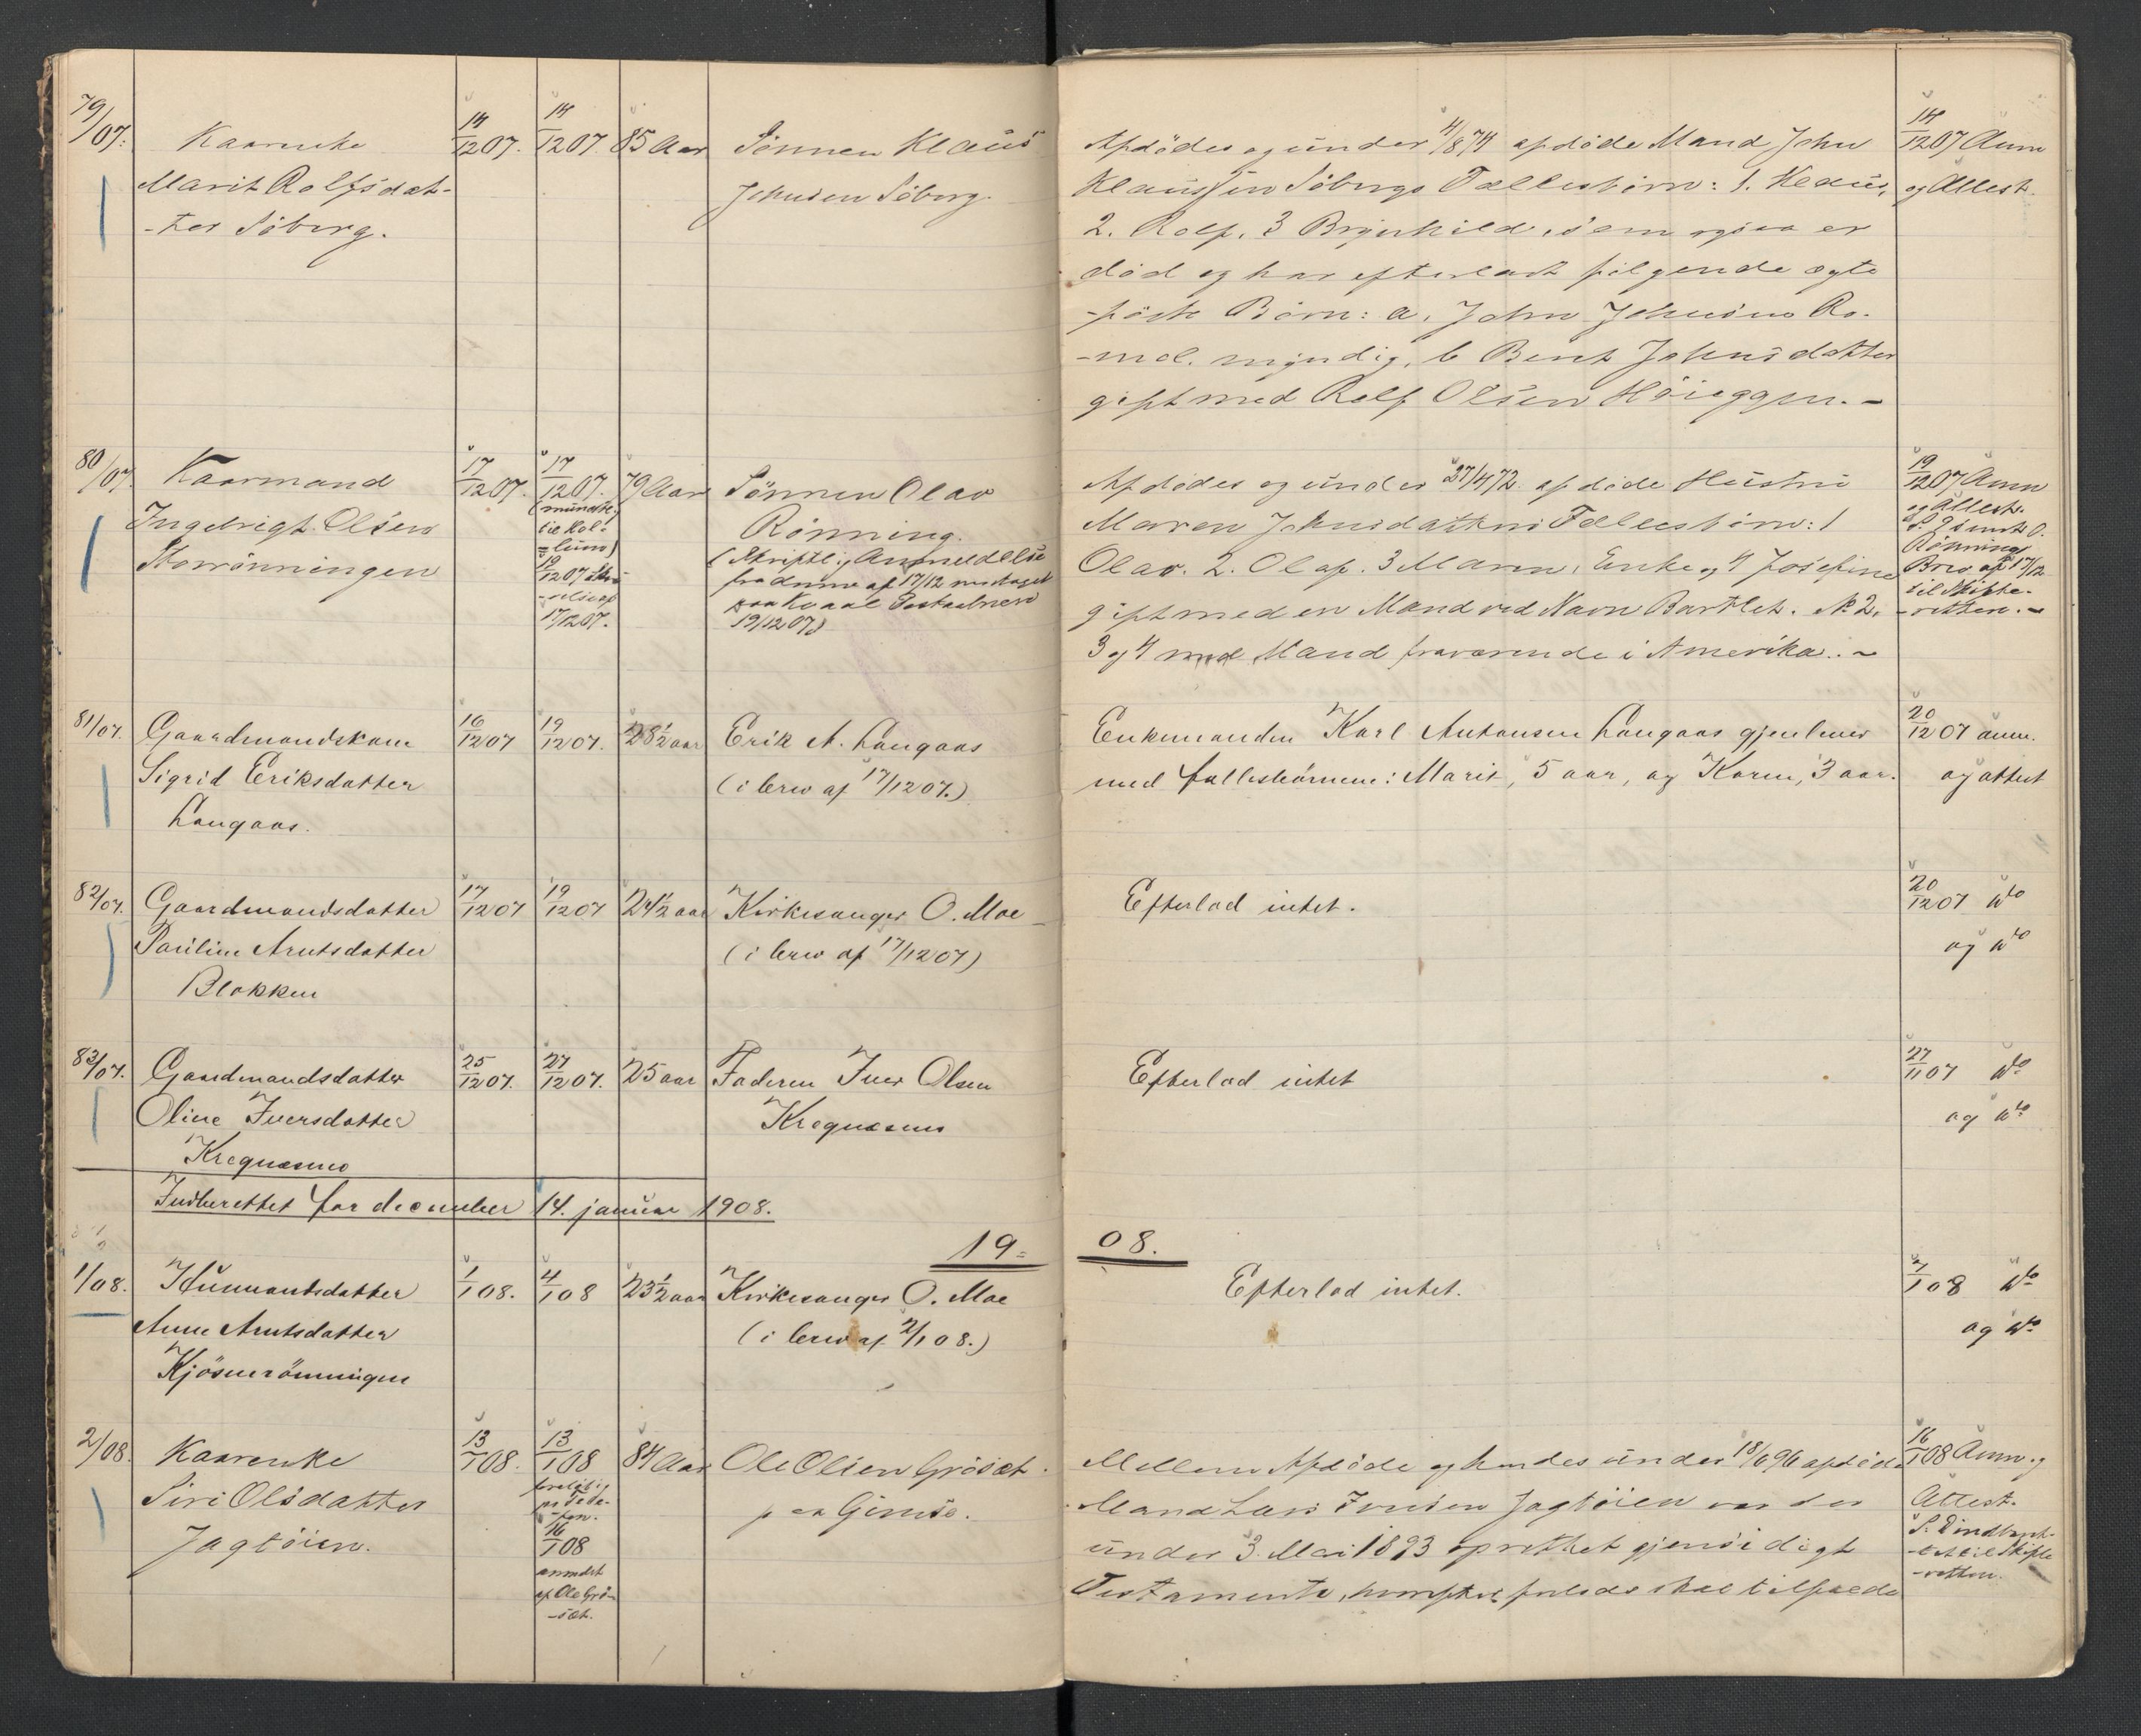 79/07.
Kaarenke
Marit Rolfsdat-
-ter Söberg.
14/12 07.
14/12 07.
85 Aar
Sönnen Klaus
Johnsen Söberg.
Afdödes og under 4/8 74 afdöde Mand John
Klaussen Söbergs Fællesbörn: 1. Klaus,
2. Rolf, 3 Brynhild, som ogsaa er
död og har efterladt fölgende ægte
-födte Börn: a, John Johnsen Ro-
-mol. myndig, b Berit Johnsdatter
gift med Rolf Olsen Höieggen. -
14/12 07 Anm
og Attest.
80/07.
Kaarmand
Ingebrigt Olsen
Storrönningen
17/12 07.
17/12 07.
(mundtl.
til Kol-
19/12 07
17/12 07.
79 Aar
Sönnen Olav
Rönning.
(Skriftlig Anmeldelse
fra denne af 17/12 modtaget
paa Kvaal Postaabneri
19/12 07)
Afdödes og under 27/4 72 afdöde Hustru
Maren Johnsdatters Fællesbörn: 1
Olav. 2. Olaf. 3 Maren, Enke og 4 Josefine
gift med en Mand ved Navn Bartlet. No 2,
3 og 4 med Mand fraværende i Amerika. -
19/12 07 Anm
og Attest.
Rönnings
Brev af 17/12
til Skifte-
-retten. -
81/07.
Gaardmandskone
Sigrid Eriksdatter
Langaas.
16/12 07
19/12 07.
28½ aar
Erik A. Langaas
(i brev af 17/12 07.)
Enkemanden Karl Antonsen Langaas gjenlever
med fællesbörnene: Marit, 5 aar, og Karen, 3 aar.
20/12 07 anm.
og attest
82/07.
Gaardmandsdatter
Pauline Arntsdatter
Blokken
17/12 07
19/12 07
24½ aar
Kirkesanger O. Moe
(i brev af 17/12 07)
Efterlod intet.
20/12 07 do
og do
83/07.
Gaardmandsdatter
Oline Iversdatter
Kregnæsmo
25/12 07.
27/12 07.
25 aar
Faderen Iver Olsen
Kregnæsmo
Efterlod intet
27/11 07 do
og do
Indberettet for december 14. januar 1908.
19= 08.
1/08.
Husmandsdatter
Anne Arntsdatter
Kjösmerönningen
1/1 08.
4/1 08
23½ aar
Kirkesanger O. Moe
(i brev af 2/1 08.)
Efterlod intet.
7/1 08 do
og do
2/08.
Kaarenke
Siri Olsdatter
Jagtöien.
13/1 08.
13/1 08
forelöbig
pr Tele-
-fon.
16/1 08
anmeldt
af Ole Grö-
-sæt.
84 Aar
Ole Olsen Grösæt
paa Gimse.
Mellem Afdöde og hendes under 18/6 96 afdöde
Mand Lars Iversen Jagtöien var der
under 3. Mai 1893 oprettet gjensidigt
Testamente, hvorefter
skal tilfalde
16/1 08 Anm. og
Attest.
S. D indberet-
-tet til Skifte
-retten.